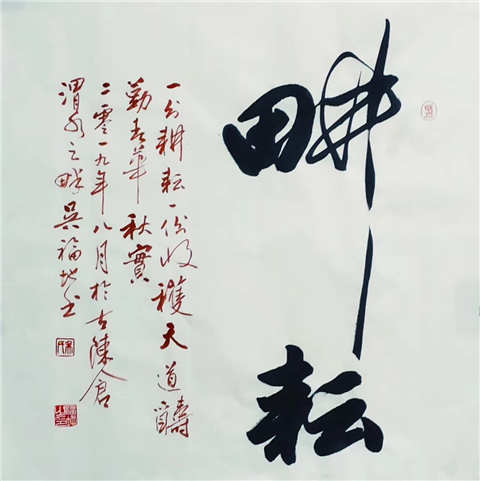 畊耘
一分耕耘一份收穫天道醻
勤春華秋實
二零一九年八月於古陳倉
渭水之畔吴福地书